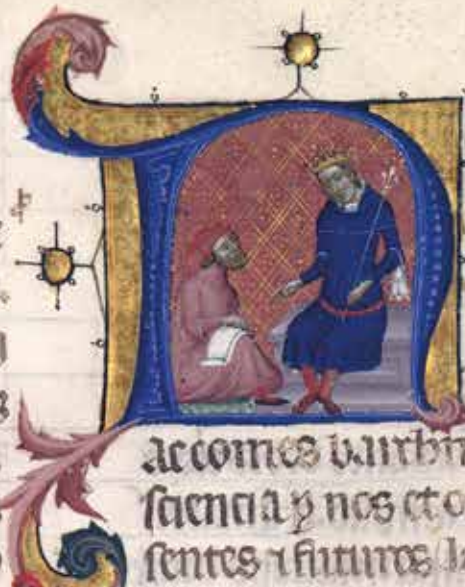 N
ac comes barchin
sciencia ꝑ nos et o
sentes ⁊ futuros